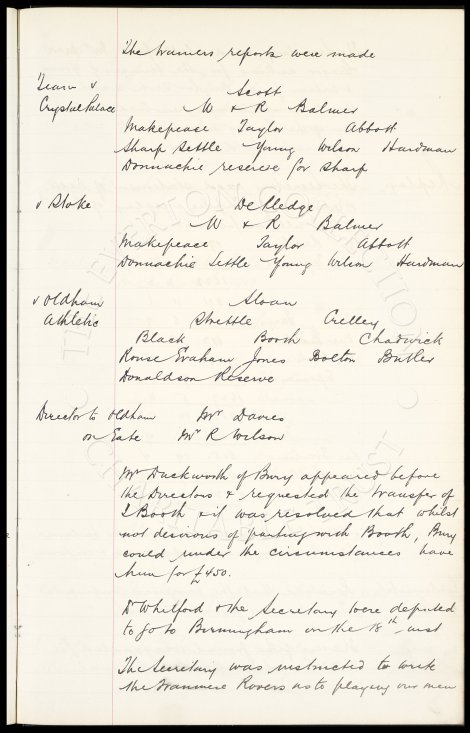 The trainers reports were made
Team v
Crystal Palace
Scott
W & R Balmer
Makepeace Taylor Abbott
Sharp Settle Young Wilson Hardman
Donnachie reserve for Sharp
v Stoke
De
W & R Balmer
Makepeace Taylor Abbott
Donnachie Settle Young Wilson Hardman
v Oldham
Athletic
Sloan
Strettle Crelley
Black Booth Chadwick
Rouse Graham Jones Bolton Butler
Donaldson Reserve
Director to Oldham Mr Davies
on Gate Mr R Wilson
Mr Duckworth of Bury appeared before
the Directors & requested the transfer of
Booth & it was resolved that whilst
not desirous of parting with Booth, Bury
could under the circumstances have
him for £450.
Dr Whitford & the Secretary were deputed
to go to Birmingham on the 18th inst
The Secretary was instructed to write
the Tranmere Rovers as to playing our men